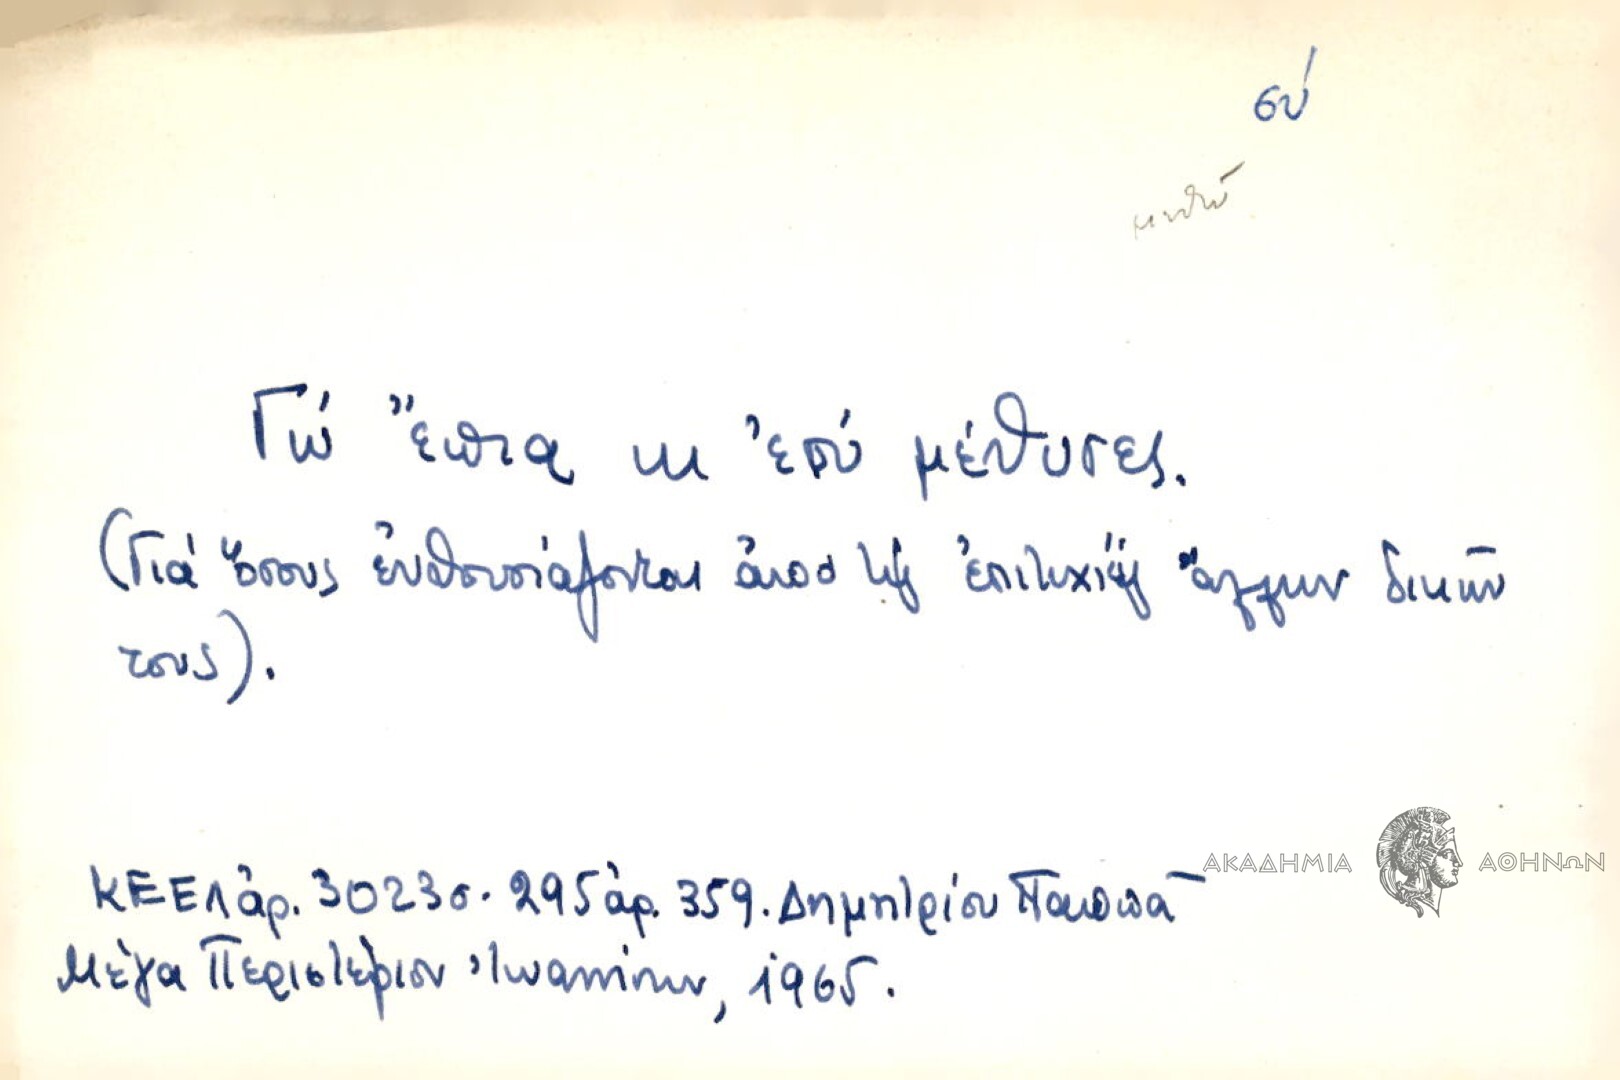 σύ
μεθῶ
Γιώ ἔπια κι ἐσύ μέθυσες.
(Γιά ὅσους ἐνθουσιάζονται ἀπό τίς ἐπιτυχίες ἄλλων δικῶν
τους).
ΚΕΕΛ ἀρ. 3023 σ. 295 ἀρ. 359. Δημητρίου Παππᾶ
Μέγα Περιστέριον Ἰωαννίνων, 1965.
ΑΚΑΔΗΜΙΑ ΑΘΗΝΩΝ